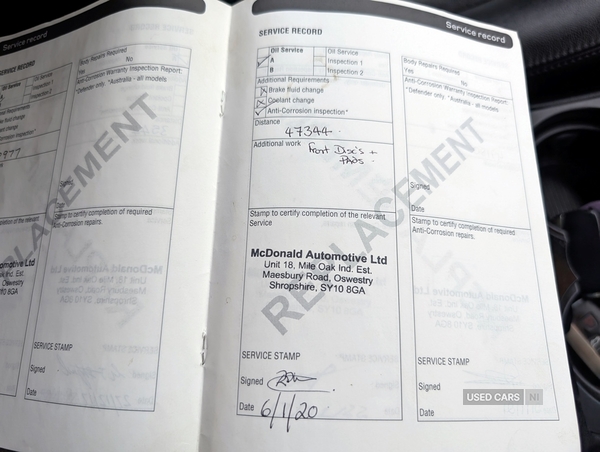 Service record
SERVICE RECORD
Oil Service
Inspection 1
Inspection 2
Body Repairs Required
Yes No
Anti-Corrosion Warranty Inspection Report:
*Defender only. *Australia - all models
Stamp to certify completion of required
Anti-Corrosion repairs.
SERVICE STAMP
Signed
Date
REPLACEMENT
Service record
SERVICE RECORD
Oil Service
A
B
Oil Service
Inspection 1
Inspection 2
Additional Requirements
Brake fluid change
Coolant change
Anti-Corrosion Inspection*
Distance
47344
Additional work Front Disc's +
Pads
Stamp to certify completion of the relevant
Service
McDonald Automotive Ltd
Unit 18, Mile Oak Ind. Est.
Maesbury Road, Oswestry
Shropshire, SY10 8GA
SERVICE STAMP
Signed
Date 6/1/20
REPLACEMENT
Body Repairs Required
Yes No
Anti-Corrosion Warranty Inspection Report:
*Defender only. *Australia - all models
Signed
Date
Stamp to certify completion of required
Anti-Corrosion repairs.
SERVICE STAMP
Signed
Date
USED CARS NI